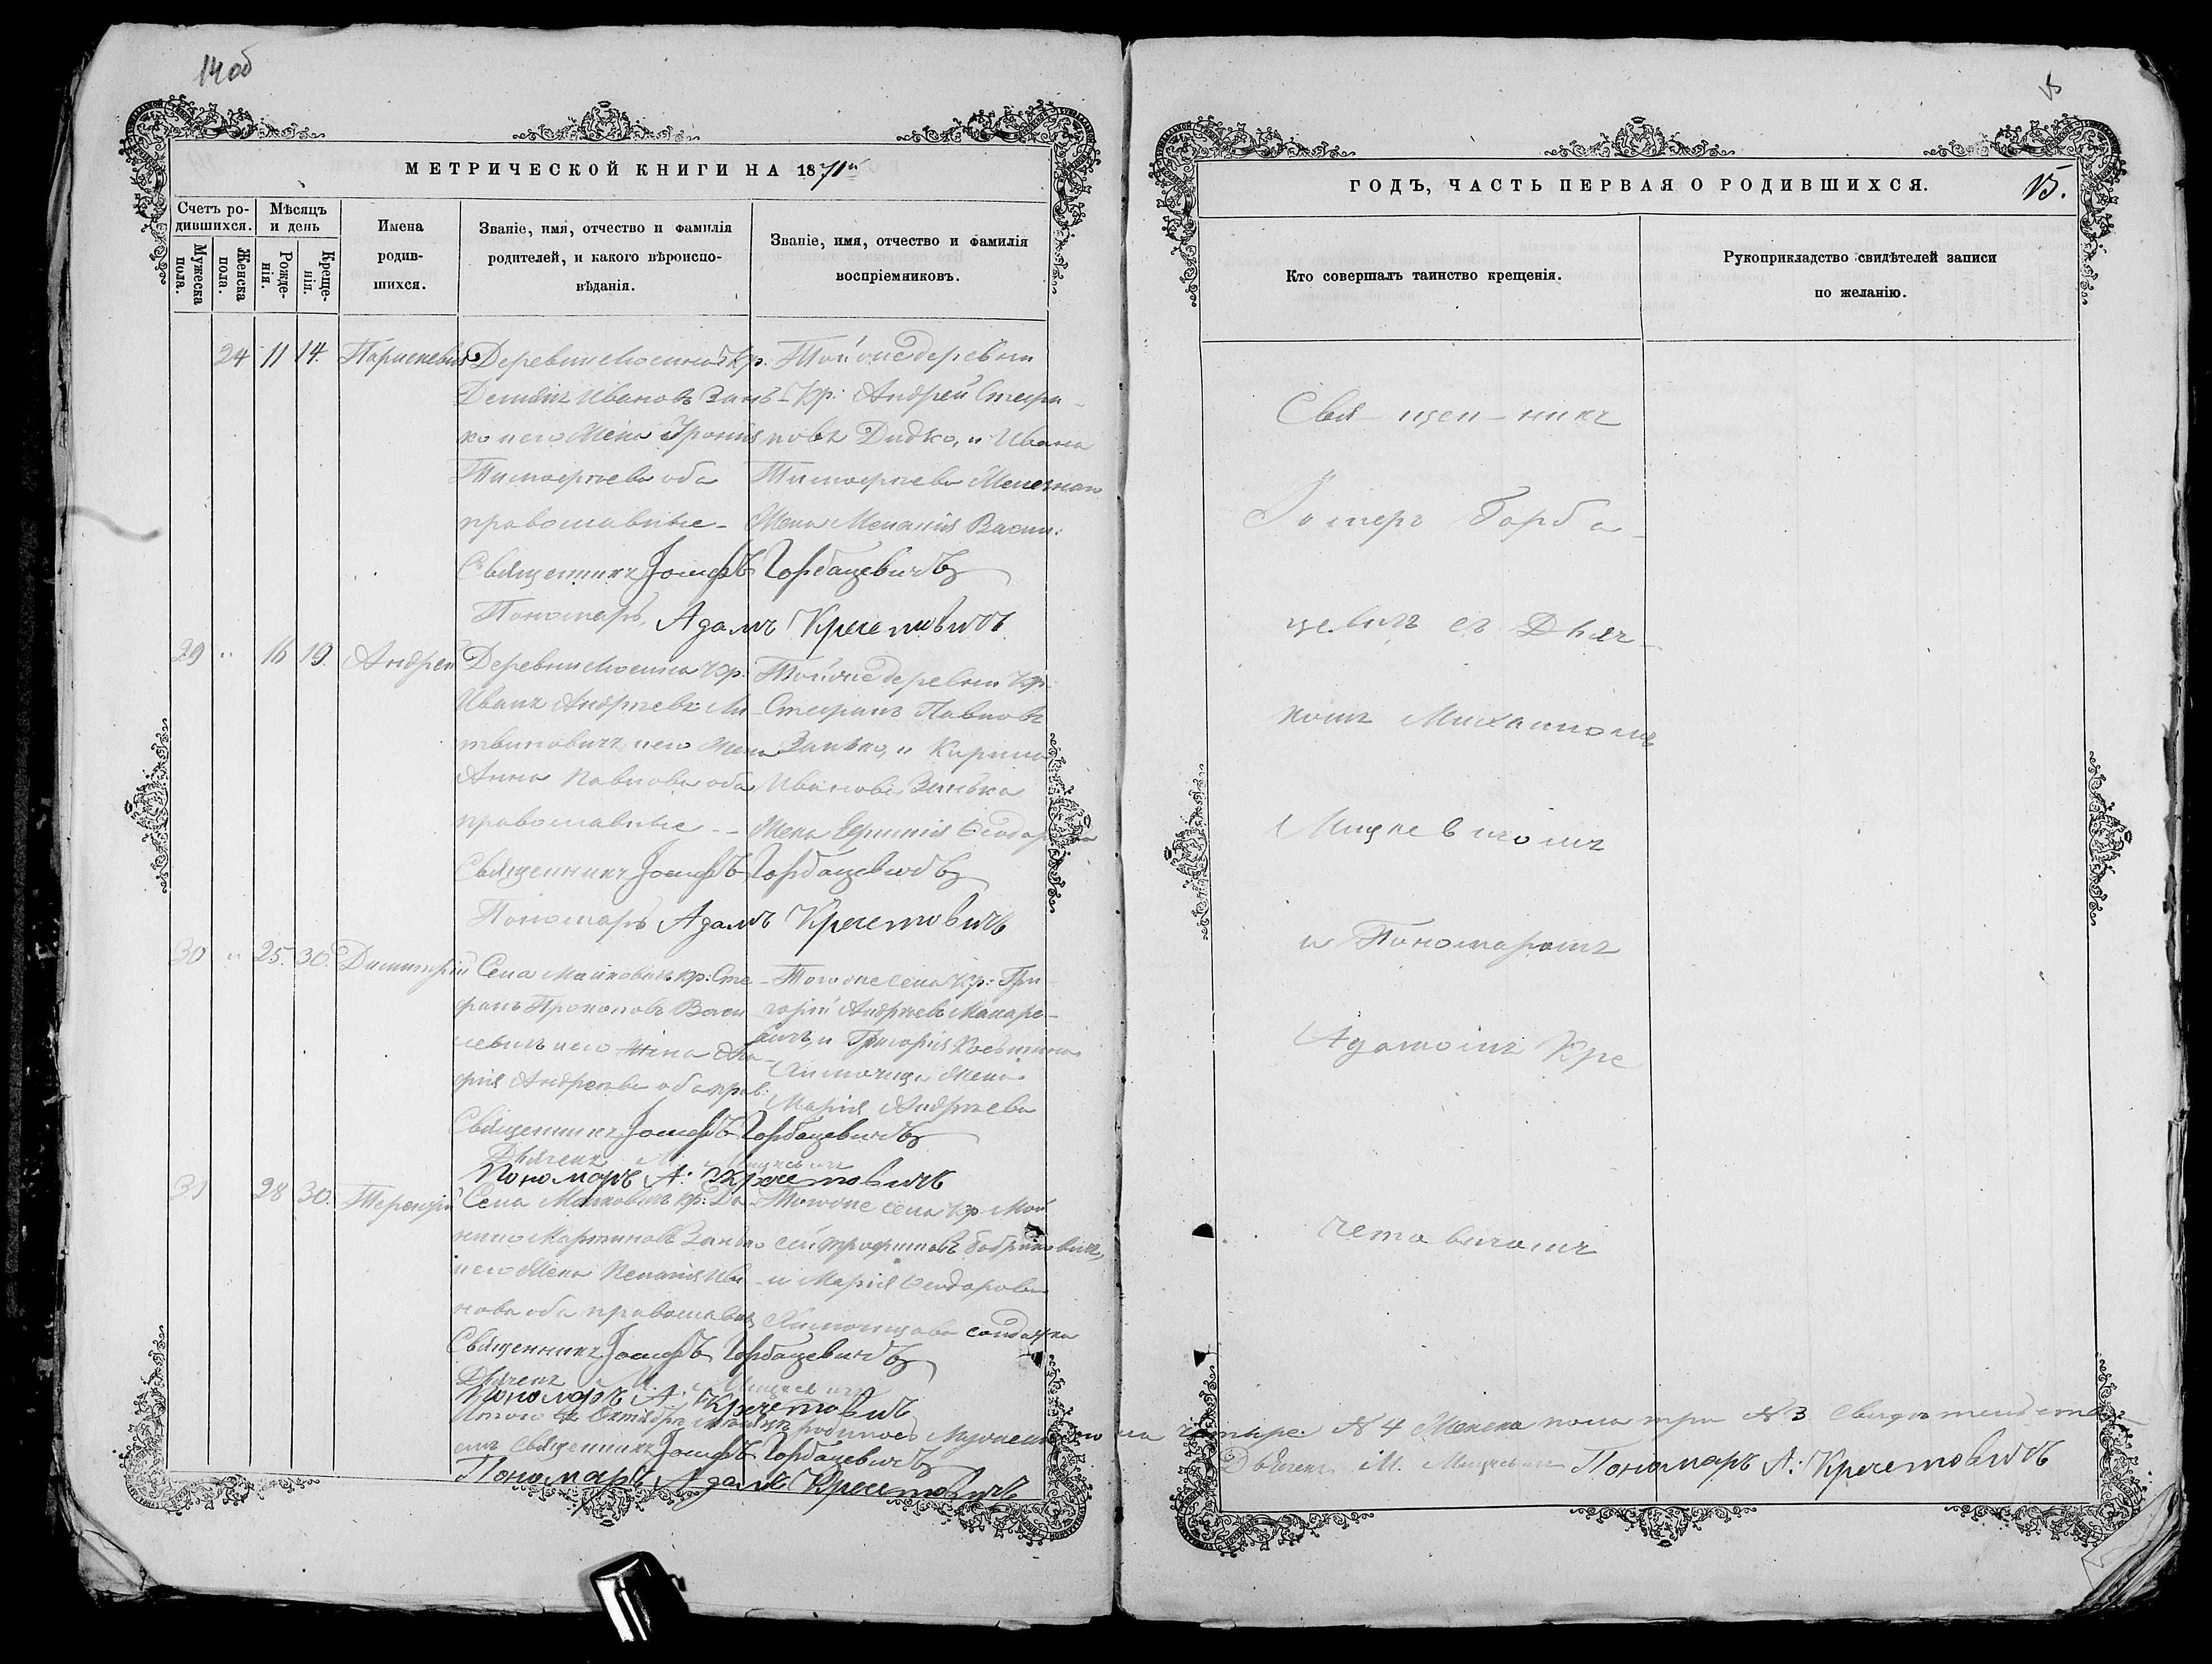 14 об
МЕТРИЧЕСКОЙ КНИГИ НА 1871й
Счетъ ро-
дившихся.
Мужеска
пола.
Женска
пола.
Мѣсяцъ
и день
Рожде-
нія.
Креще-
нія.
Имена
родив-
шихся.
Званіе, имя, отчество и фамилія
родителей, и какого вѣроиспо-
вѣданія.
Званіе, имя, отчество и фамилія
воспріемниковъ.
24 11 14.
Деревни Кр.
Иванов Зань-
ко и его Жена
Тимофѣева оба
православные-
Той же деревни
Кр: Андрей Стефа-
новъ Дидко, и Ивана
Тимофѣева
Жена Меланія Васил:
Священникъ Іосифъ Горбацевичъ
Пономаръ Адамъ Кречетовичъ
29 " 16 19. Андрей
Деревни Кр.
Иванъ Андреевъ Ли-
твиновичъ и его Жена
Анна Павлова оба
православные --
Той же деревни Кр.
Стефанъ Павловъ
Занько, и Кирила
Иванова Занька
Жена Ефимія Ѳеодорова
Священникъ Іосифъ Горбацевичъ
Пономаръ Адамъ Кречетовичъ
30 " 25. 30. Димитрій
Села кр: Сте-
фанъ Прокоповъ Васи-
левичъ и его Жена
Андреева оба прав:
Того же села Кр: Гри-
горій Андреевъ Макаре-
вичъ, и Григорія
Жена
Марія Андреева
Священникъ Іосифъ Горбацевичъ
Дьячекъ М. Мицкевичъ
Пономаръ А: Кречетовичъ
31 28 30. Терентій
Села кр: Да-
нило Мартиновъ Занько
и его Жена Меланія Ива-
нова оба православн
Того же села Кр. Мой-
сей Трофимовъ Бобриковичъ,
и Марія Ѳеодорова
солдатка
Священникъ Іосифъ Горбацевичъ
Дьячекъ М. Мицкевичъ
Пономаръ А. Кречетовичъ
Итого въ Октябрѣ мѣсяцѣ родилось Мужеска пола четыре № 4 Женска пола три № 3 свидѣтельству-
емъ Священникъ Іосифъ Горбацевичъ Дьячекъ М. Мицкевичъ Пономаръ А: Кречетовичъ
Пономаръ Адамъ Кречетовичъ
15
ГОДЪ, ЧАСТЬ ПЕРВАЯ О РОДИВШИХСЯ.
15.
Кто совершалъ таинство крещенія.
Рукоприкладство свидѣтелей записи
по желанію.
Свя-щен-никъ
Іосифъ Горба-
цевичъ съ Дьяч-
комъ Михаиломъ
Мицкевичомъ
и Пономаромъ
Адамомъ Кре
четовичомъ